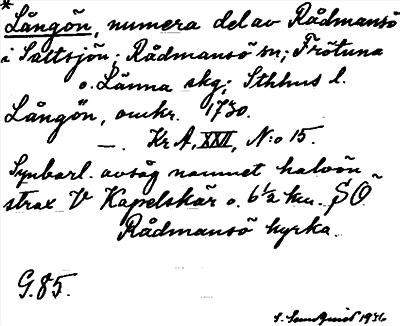 *
Långön, numera del av Rådmansö
i Saltsjön; Rådmansö sn; Frötuna
o. Länna skg; Sthlms l.
Långön, omkr. 1730.
—. Kr A, XXII, N:o 15.
Synbarl. avsåg namnet halvön
strax V Kapelskär o. 6½ km. SO
Rådmansö kyrka.
G. 85.
S. Lundquist 1936